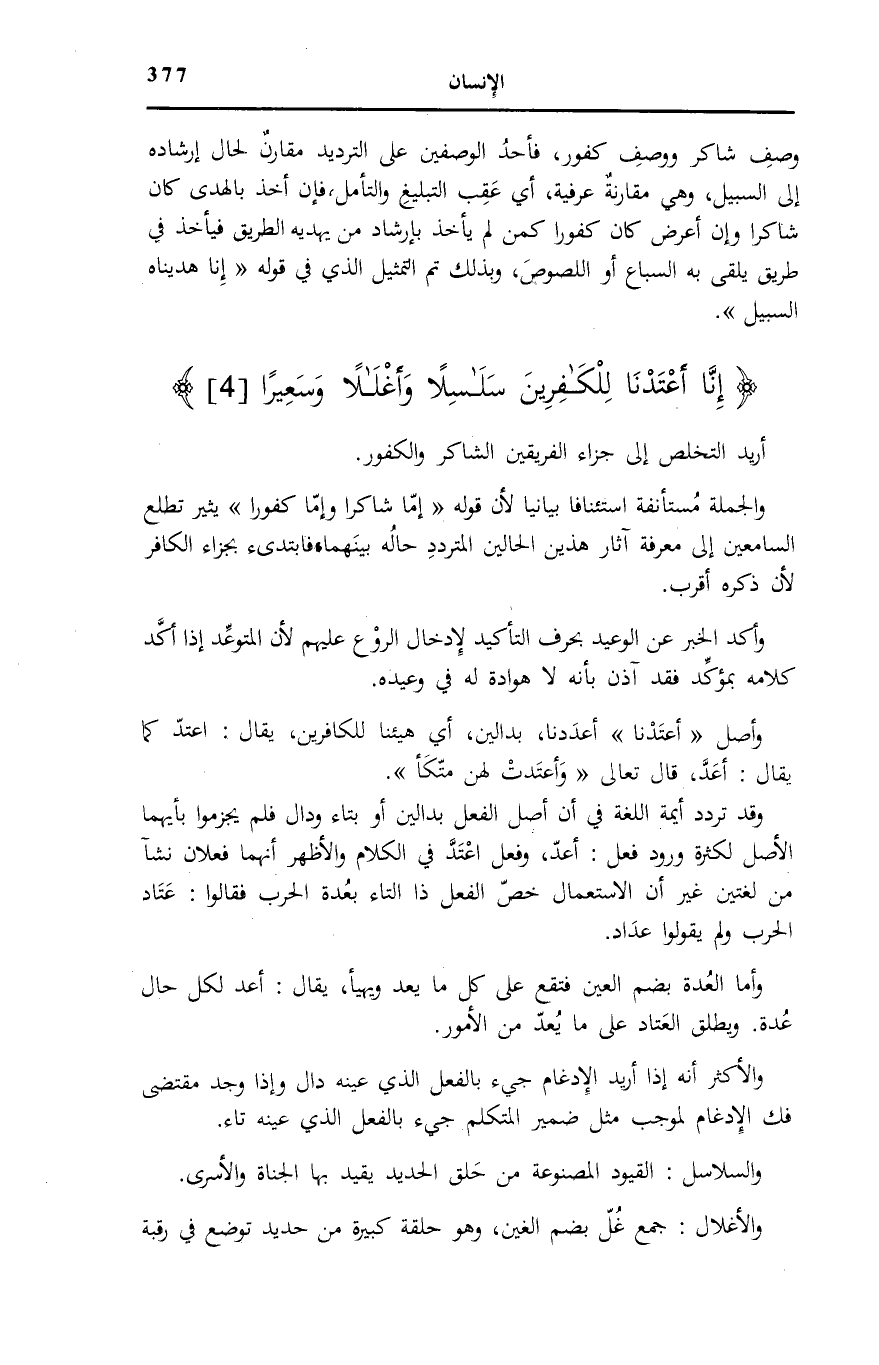 377
الإنسان
وصفِ شاكر ووصفِ كفور، فأحدُ الوصفين على الترديد مقارنٌ لحال إرشاده
إلى السبيل، وهي مقارنةٌ عرفية، أي عَقِب التبليغِ والتأمل، فإن أخذ بالهدى كان
شاكرا وإن أعرض كان كفورا كمن لم يأخذ بإرشاد من يهديه الطريق فيأخذ في
طريق يلقى به السباع أو اللصوصَ، وبذلك تم التمثيل الذي في قوله « إنا هديناه
السبيل ».
﴿ إِنَّا أَعْتَدْنَا لِلْكَـٰفِرِينَ سَلَـٰسِلًا وَأَغْلَـٰلًا وَسَعِيرًا [4] ﴾
أريد التخلص إلى جزاء الفريقين الشاكر والكفور.
والجملة مُستأنفة استئنافا بيانيا لأن قوله « إمّا شاكرا وإمّا كفورا » يثير تطلع
السامعين إلى معرفة آثار هذين الحالين المترددِ حالُه بينَهما، فابتدىء بجزاء الكافر
لأن ذكره أقرب.
وأكد الخبر عن الوعيد بحرف التأكيد لإدخال الروْع عليهم لأن المتوعِّد إذا أكَّد
كلامه بمؤكِّد فقد آذن بأنه لا هوادة له في وعيده.
وأصل « أعتَدْنا » أعدَدنا، بدالين، أي هيئنا للكافرين، يقال : اعتدّ كما
يقال : أعَدَّ، قال تعالى « وَأعتَدتْ لهن متّكَأ ».
وقد تردد أيمة اللغة في أن أصل الفعل بدالين أو بتاء ودال فلم يجزموا بأيهما
الأصل لكثرة ورود فعل : أعدّ، وفعل اعْتَدَّ في الكلام والأظهر أنهما فعلان نشآ
من لغتين غير أن الاستعمال خصّ الفعل ذا التاء بعُدة الحرب فقالوا : عَتَاد
الحرب ولم يقولوا عدَاد.
وأما العُدة بضم العين فتقع على كل ما يعد ويهيأ، يقال : أعد لكل حال
عُدة. ويطلق العَتاد على ما يُعدّ من الأمور.
والأكثر أنه إذا أريد الإدغام جيء بالفعل الذي عينه دال وإذا وجد مقتضى
فك الإدغام لموجب مثل ضمير المتكلم جيء بالفعل الذي عينه تاء.
والسلاسل : القيود المصنوعة من حَلق الحديد يقيد بها الجناة والأسرى.
والأغلال : جمع غُلّ بضم الغين، وهو حلقة كبيرة من حديد توضع في رقبة